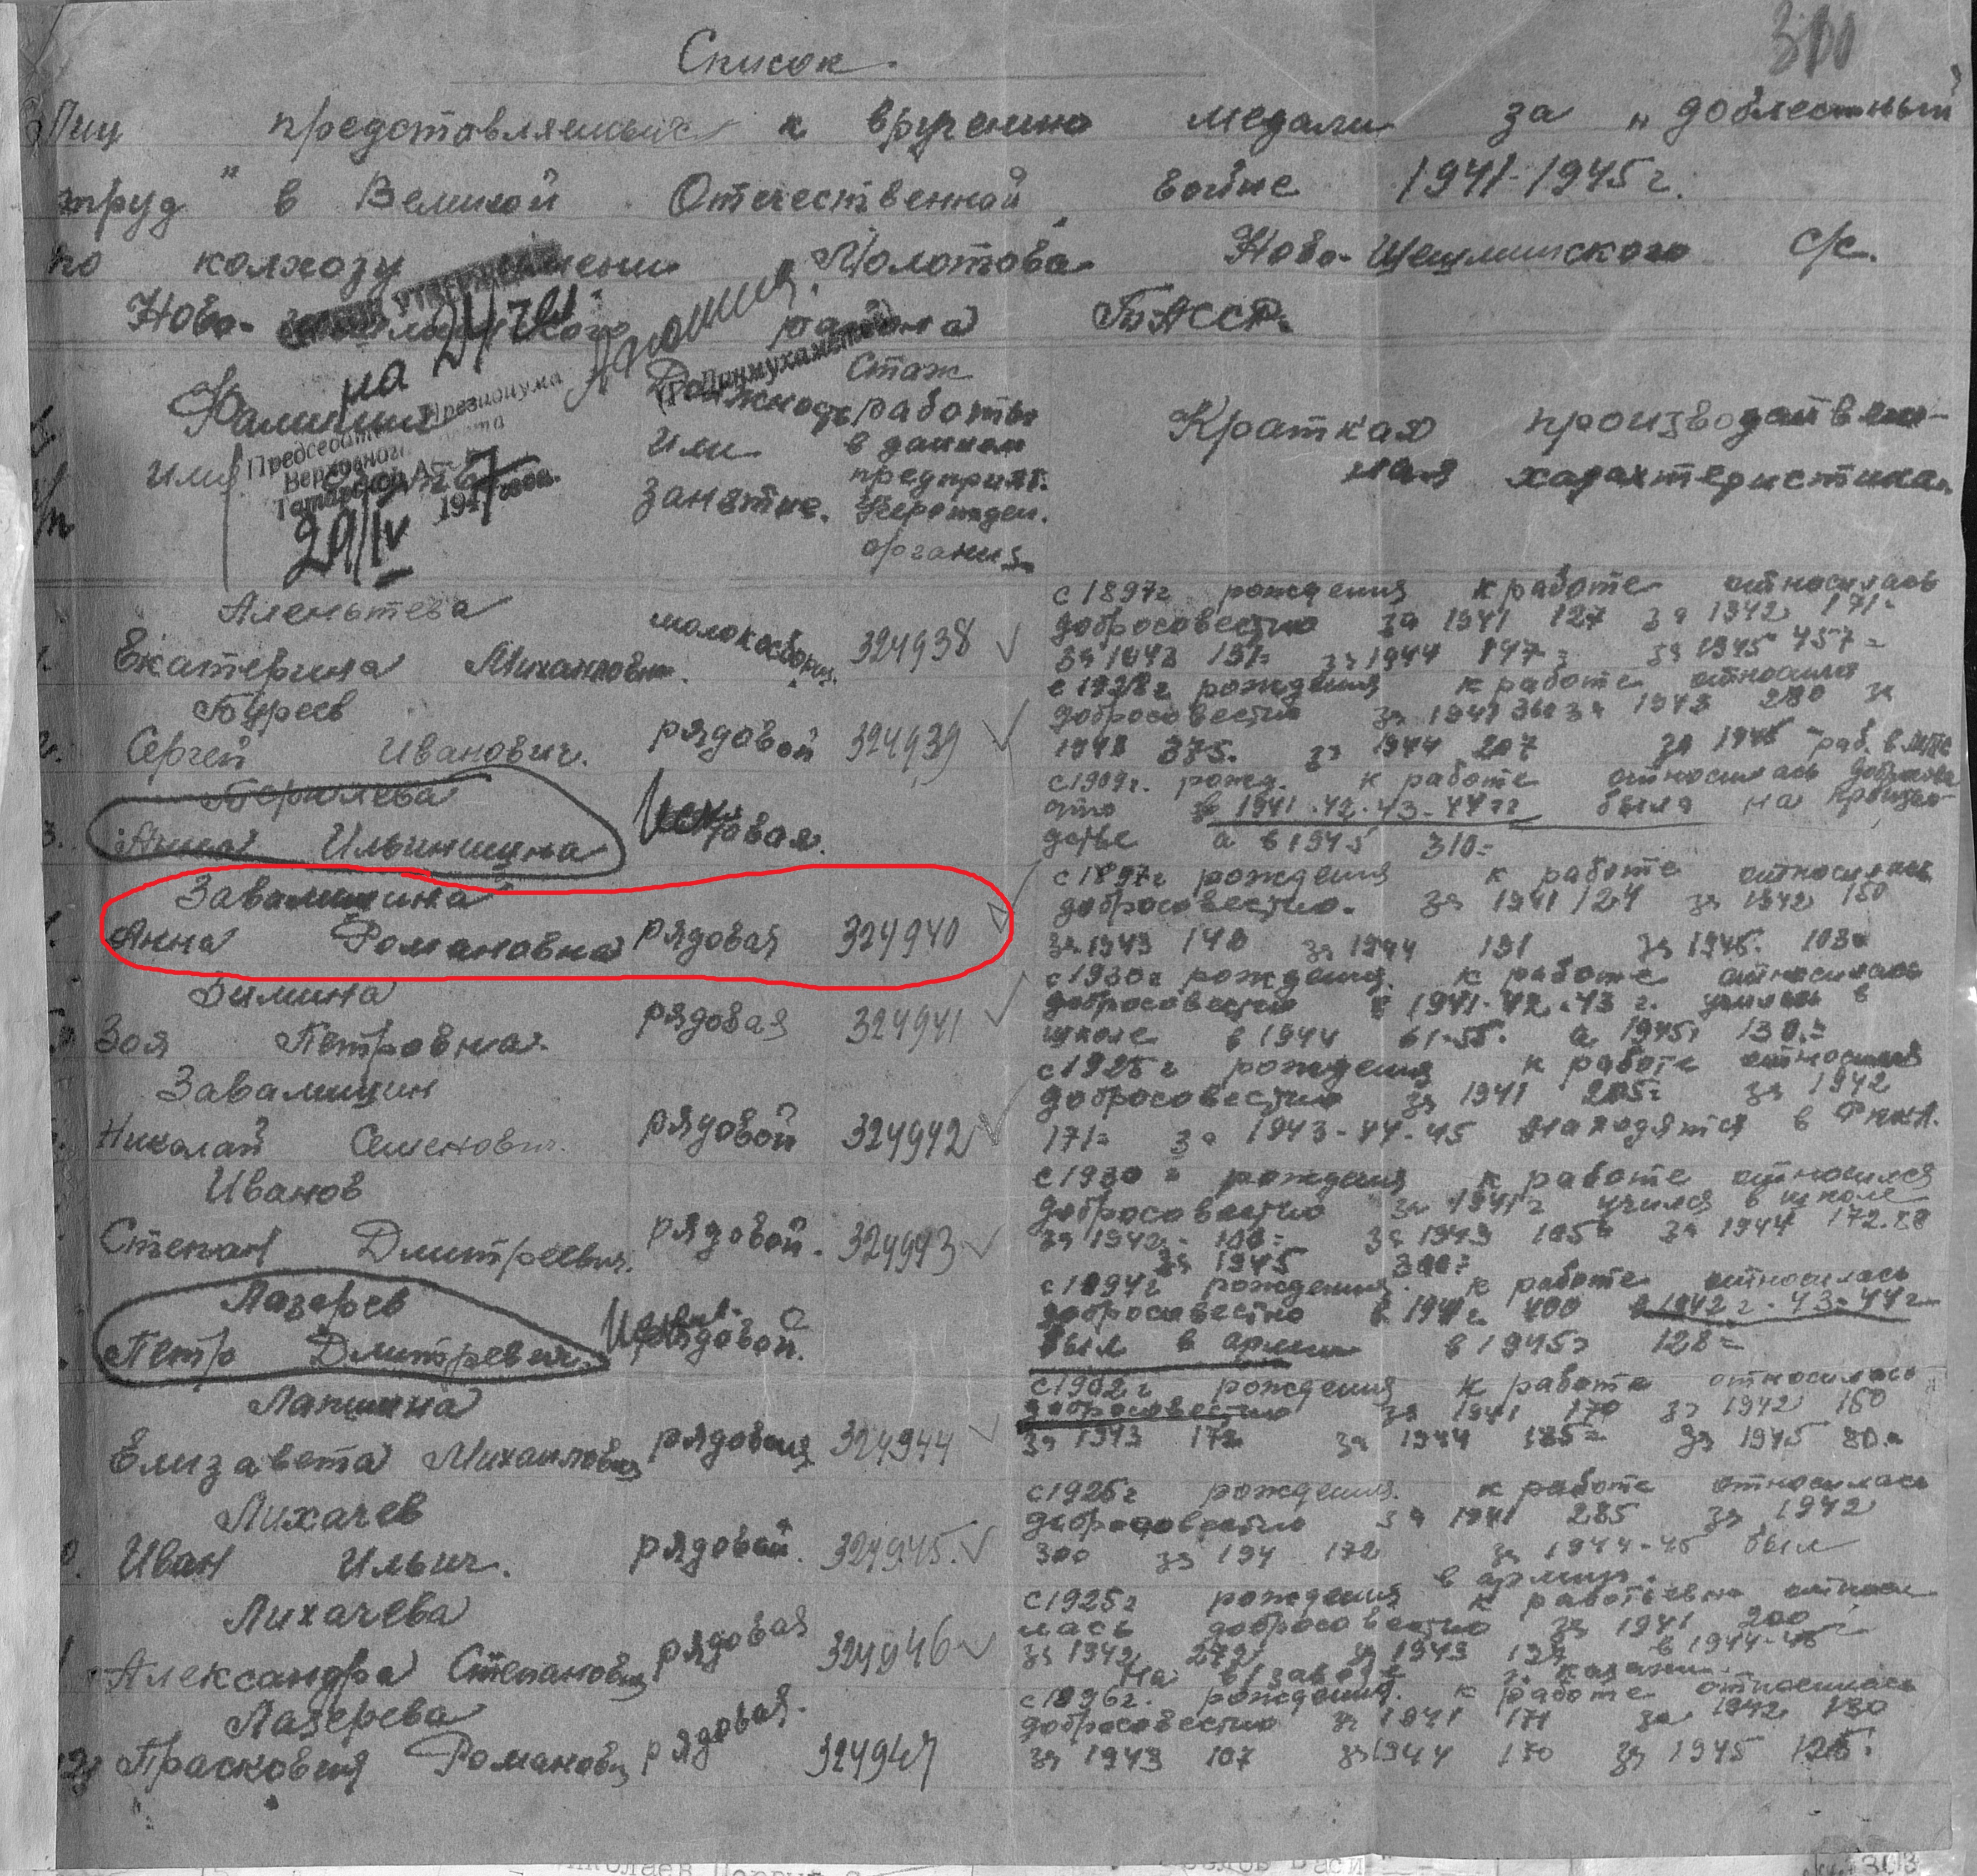 Список.
300
Лиц представляемых к вручению медали за „доблестный
труд" в Великой Отечественной войне 1941-1945 г.
по колхозу имени Молотова Ново-Шешминского с/с.
Ново- района ТАССР.
на 21/
Председатель Президиума
Верховного
Татарской
29/IV 1947 года.
Фамилия
имя
Должность
или
занятие.
Стаж
работы
в данном
предприят.
учрежден.
организ.
Краткая производствен-
ная характеристика.
Аленьтева
Екатерина Михайловн.
молокосборщ. 324938
с 1897г рождения к работе относилась
добросовестно за 1941 127 за 1942 171=
за 1943 131= за 1944 147= за 1945 457=
2. Буреев
Сергей Иванович.
рядовой 324939
с 1928г рождения к работе относился
добросовестно за 1941 за 1943 280 за
375. за 1944 207 за 1945 раб. в МТС
3. Анна Ильинишна
рядовая.
с 1909г. рожд. к работе относилась добросове
стно в 1941.42.43.44 гг была на
а в 1945 310=
Завалишина
Анна Романовна
рядовая 324940
с 1897г рождения к работе относилась
добросовестно. за 1941 124 за 1942 150
за 1943 140 за 1944 131 за 1945. 103=
Демина
Зоя Петровна.
рядовая 324941
с 1930г рождения. к работе относилась
добросовестно в 1941.42.43 г. училась в
школе в 1944 61-55. а 1945г 130.=
Завалишин
Николай Семенович.
рядовой 324942
с 1925г рождения к работе относился
добросовестно за 1941 285= за 1942
171= за 1943-44-45 находятся в
Иванов
Степан Дмитреевич.
рядовой. 324943
с 1930г рождения к работе относился
добросовестно за 1941г учился в школе
за 1942г. 100= за 1943 105= за 1944 172.80
за 1945 300=
Лазарев
Петр Дмитревич.
рядовой.
с 1894г рождения. к работе относилась
добросовестно в 1941г. 400 в 1942г.43-44г
был в армии в 1945г 128=
Лапшина
Елизавета Михаиловна
рядовая 324944
с 1902г рождения к работе относилась
добросовестно за 1941 170 за 1942 150
за 1943 172 за 1944 185= за 1945 80=
Лихачев
Иван Ильич.
рядовой. 324945.
с 1925г рождения. к работе относилась
добросовестно за 1941 285 за 1942
300 за 194 172 за 1944-45 был
в армии.
Лихачева
Александра Степановна
рядовая 324946
с 1925г рождения к работе относи
лась добросовестно за 1941 200
за 1942 272 за 1943 в 1944-45
на в/заводе г. казани.
Лазерева
Прасковия Романовн
рядовая. 324947
с 1896г. рождения. к работе относилась
добросовестно за 1941 171 за 1942 130
за 1943 107 за 1944 170 за 1945 125.